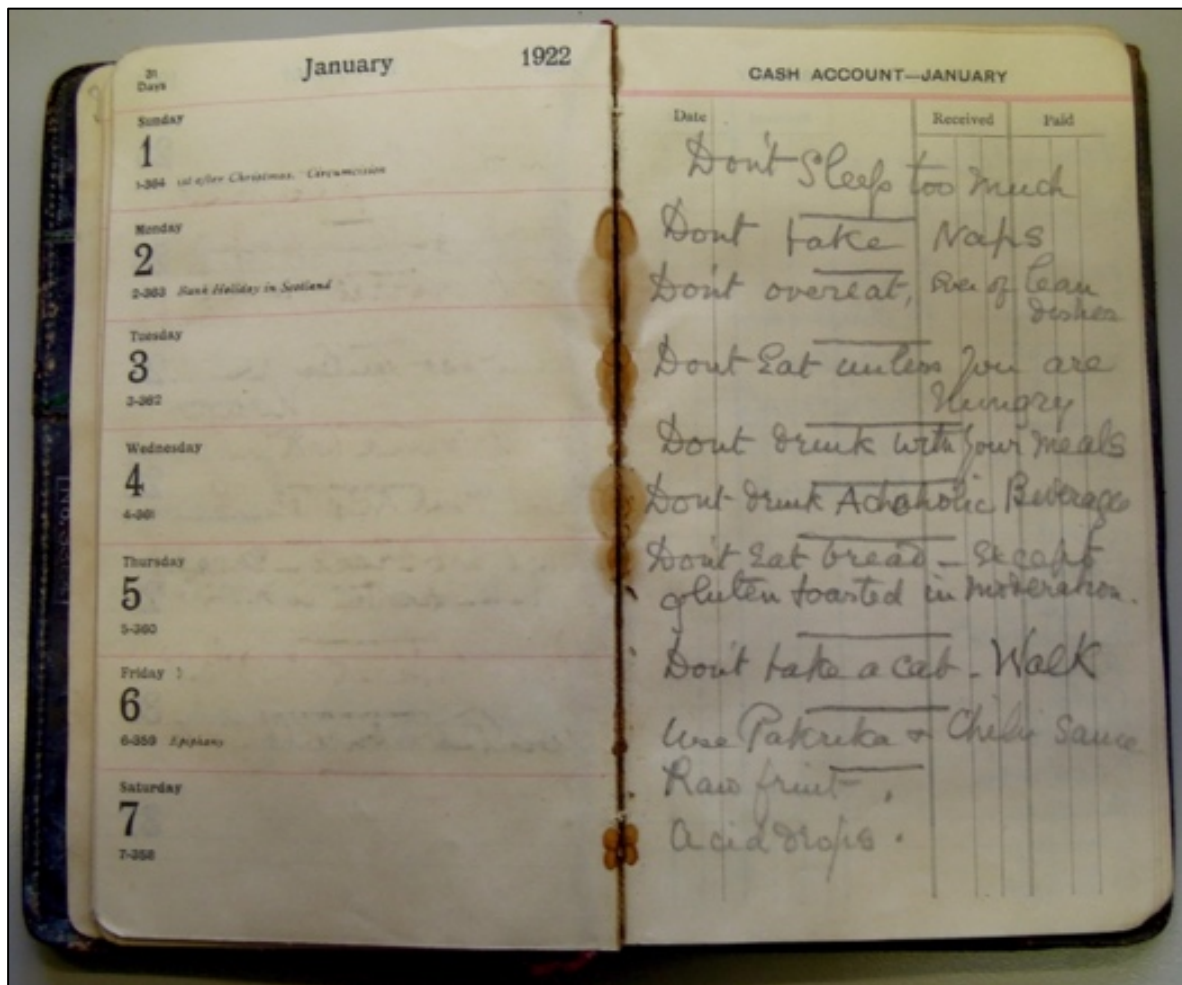 31
Days
January
1922
Sunday
1
1-364 1st after Christmas. Circumcision
Monday
2
2-363 Bank Holiday in Scotland
Tuesday
3
3-362
Wednesday
4
4-361
Thursday
5
5-360
Friday
6
6-359 Epiphany
Saturday
7
7-358
CASH ACCOUNT—JANUARY
Date Received Paid
Don't Sleep too much
Dont take Naps
Don't overeat, even of lean
dishes
Dont Eat unless you are
Hungry
Dont drink with your meals
Dont drink Achoholic Beverages
Don't Eat bread – Except
gluten toasted in moderation.
Don't take a cab – Walk
Use Pakrika & Chili Sauce
Raw fruit,
Acid drops.